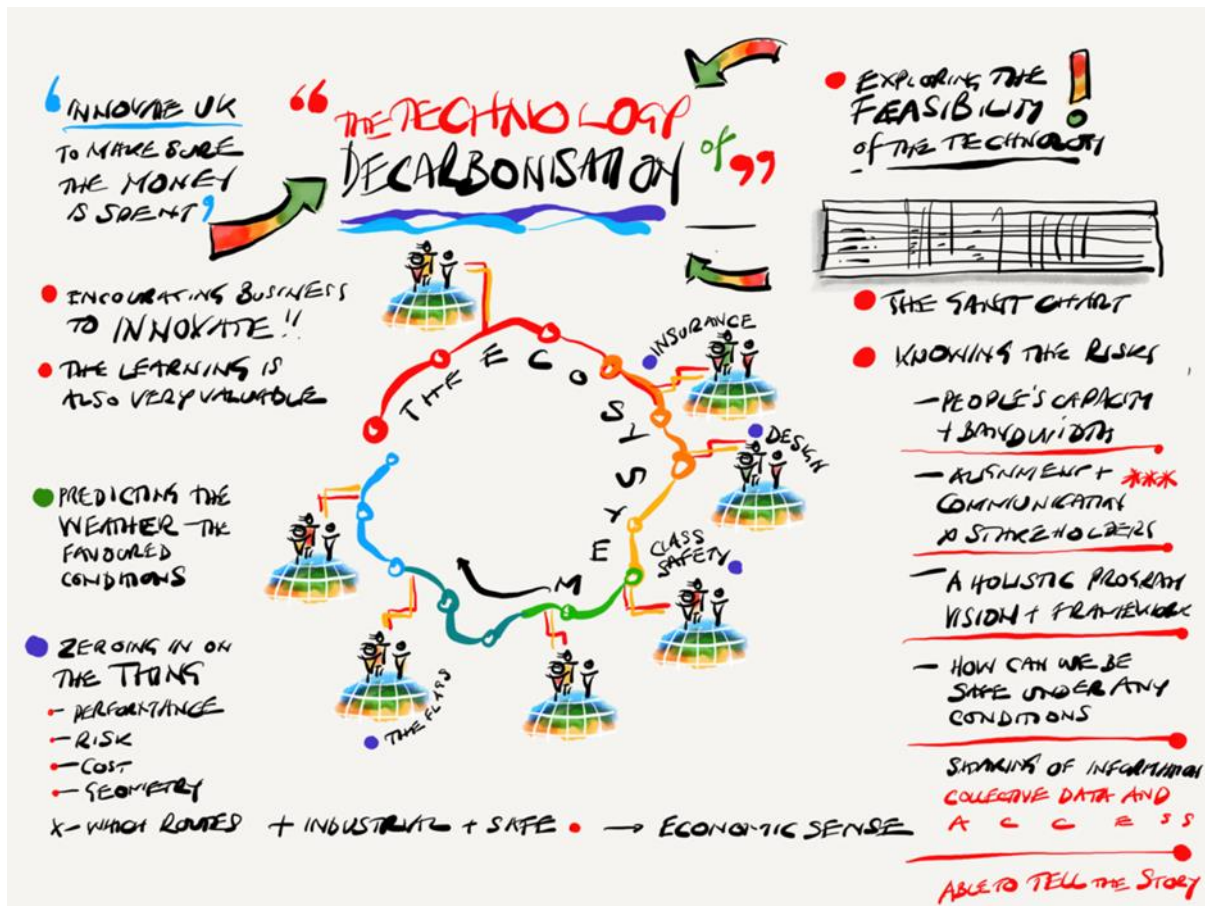 ‘INNOVATE UK
TO MAKE SURE
THE MONEY
IS SPENT’
“THE TECHNOLOGY
of ”
DECARBONISATION
• ENCOURAGING BUSINESS
TO INNOVATE!!
• THE LEARNING IS
ALSO VERY VALUABLE
• PREDICTING THE
WEATHER - THE
FAVOURED
CONDITIONS
• ZEROING IN ON
THE THING
- PERFORMANCE
- RISK
- COST
- GEOMETRY
X - WHICH ROUTES + INDUSTRIAL + SAFE • → ECONOMIC SENSE
THE ECOSYSTEM
• INSURANCE
• DESIGN
CLASS
SAFETY •
• THE FLAGS
• EXPLORING THE
FEASIBILITY
of THE TECHNOLOGY
!
• THE GANTT CHART
• KNOWING THE RISKS
- PEOPLE'S CAPACITY
+ BANDWIDTH
- ALIGNMENT + ***
COMMUNICATION
STAKEHOLDERS
- A HOLISTIC PROGRAM
VISION + FRAMEWORK
- HOW CAN WE BE
SAFE UNDER ANY
CONDITIONS
SHARING OF INFORMATION
COLLECTIVE DATA AND
ACCESS
ABLE TO TELL THE STORY